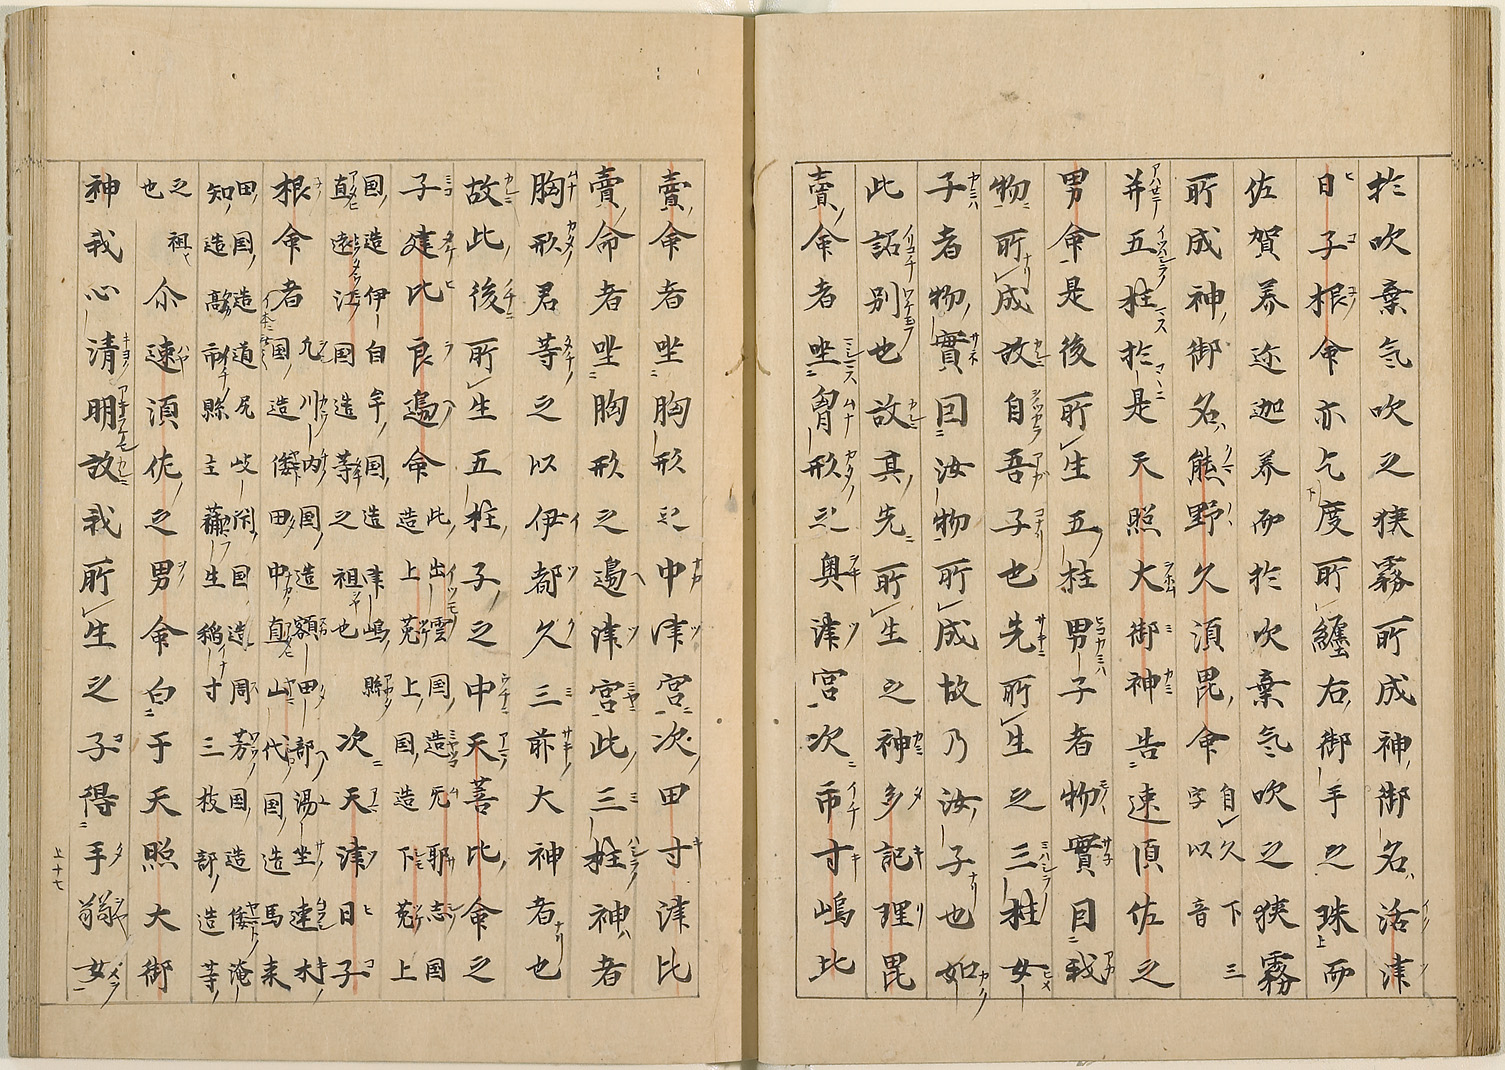 於吹棄氣吹之狭霧所成神御名活津
日子根命亦乞度所纏右御手之珠而
佐賀美迩迦美而於吹棄氣吹之狭霧
所成神御名熊野久須毘命自久下三字以音
并五柱於是天照大御神告速須佐之
男命是後所生五柱男子者物實因我
物所成故自吾子也先所生之三柱女
子者物實因汝物所成故乃汝子也如
此詔別也故其先所生之神多記理毘
賣命者坐胷形之奥津宮次市寸嶋比
賣命者坐胸形之中津宮次田寸津比
賣命者坐胸形之邊津宮此三柱神者
胸形君等之以伊都久三前大神者也
故此後所生五柱子之中天菩比命之
子建比良邉命此出雲国造无耶志国造上菟上国造下菟上
国造伊自牟国造津嶋縣直遠江国造等之祖也次天津日子
根命者九川内国造額田部湯坐連木国造倭田中直山代国造馬来
田国造道尻岐閇国造周芳国造倭淹知造髙市縣主蒲生稲寸三枝部造等
之祖也尒速須佐之男命白于天照大御
神我心清明故我所生之子得手嫋女
上十七